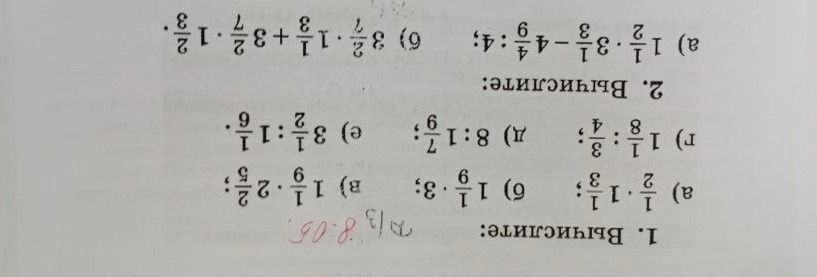 1. Вычислите: д/з 8:05
а) 1/2 · 1 1/3; б) 1 1/9 · 3; в) 1 1/9 · 2 2/5;
г) 1 1/8 : 3/4; д) 8 : 1 7/9; е) 3 1/2 : 1 1/6.
2. Вычислите:
а) 1 1/2 · 3 1/3 − 4 4/9 : 4; б) 3 2/7 · 1 1/3 + 3 2/7 · 1 2/3.